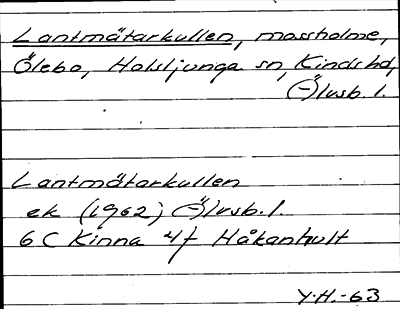 Lantmätarkullen, mossholme,
Ölebo, Holsljunga sn, Kinds hd,
(-) Älvsb. l.
Lantmätarkullen
ek (1962) (-) Älvsb. l.
6 C Kinna 4f Håkanhult
Y.H.-63